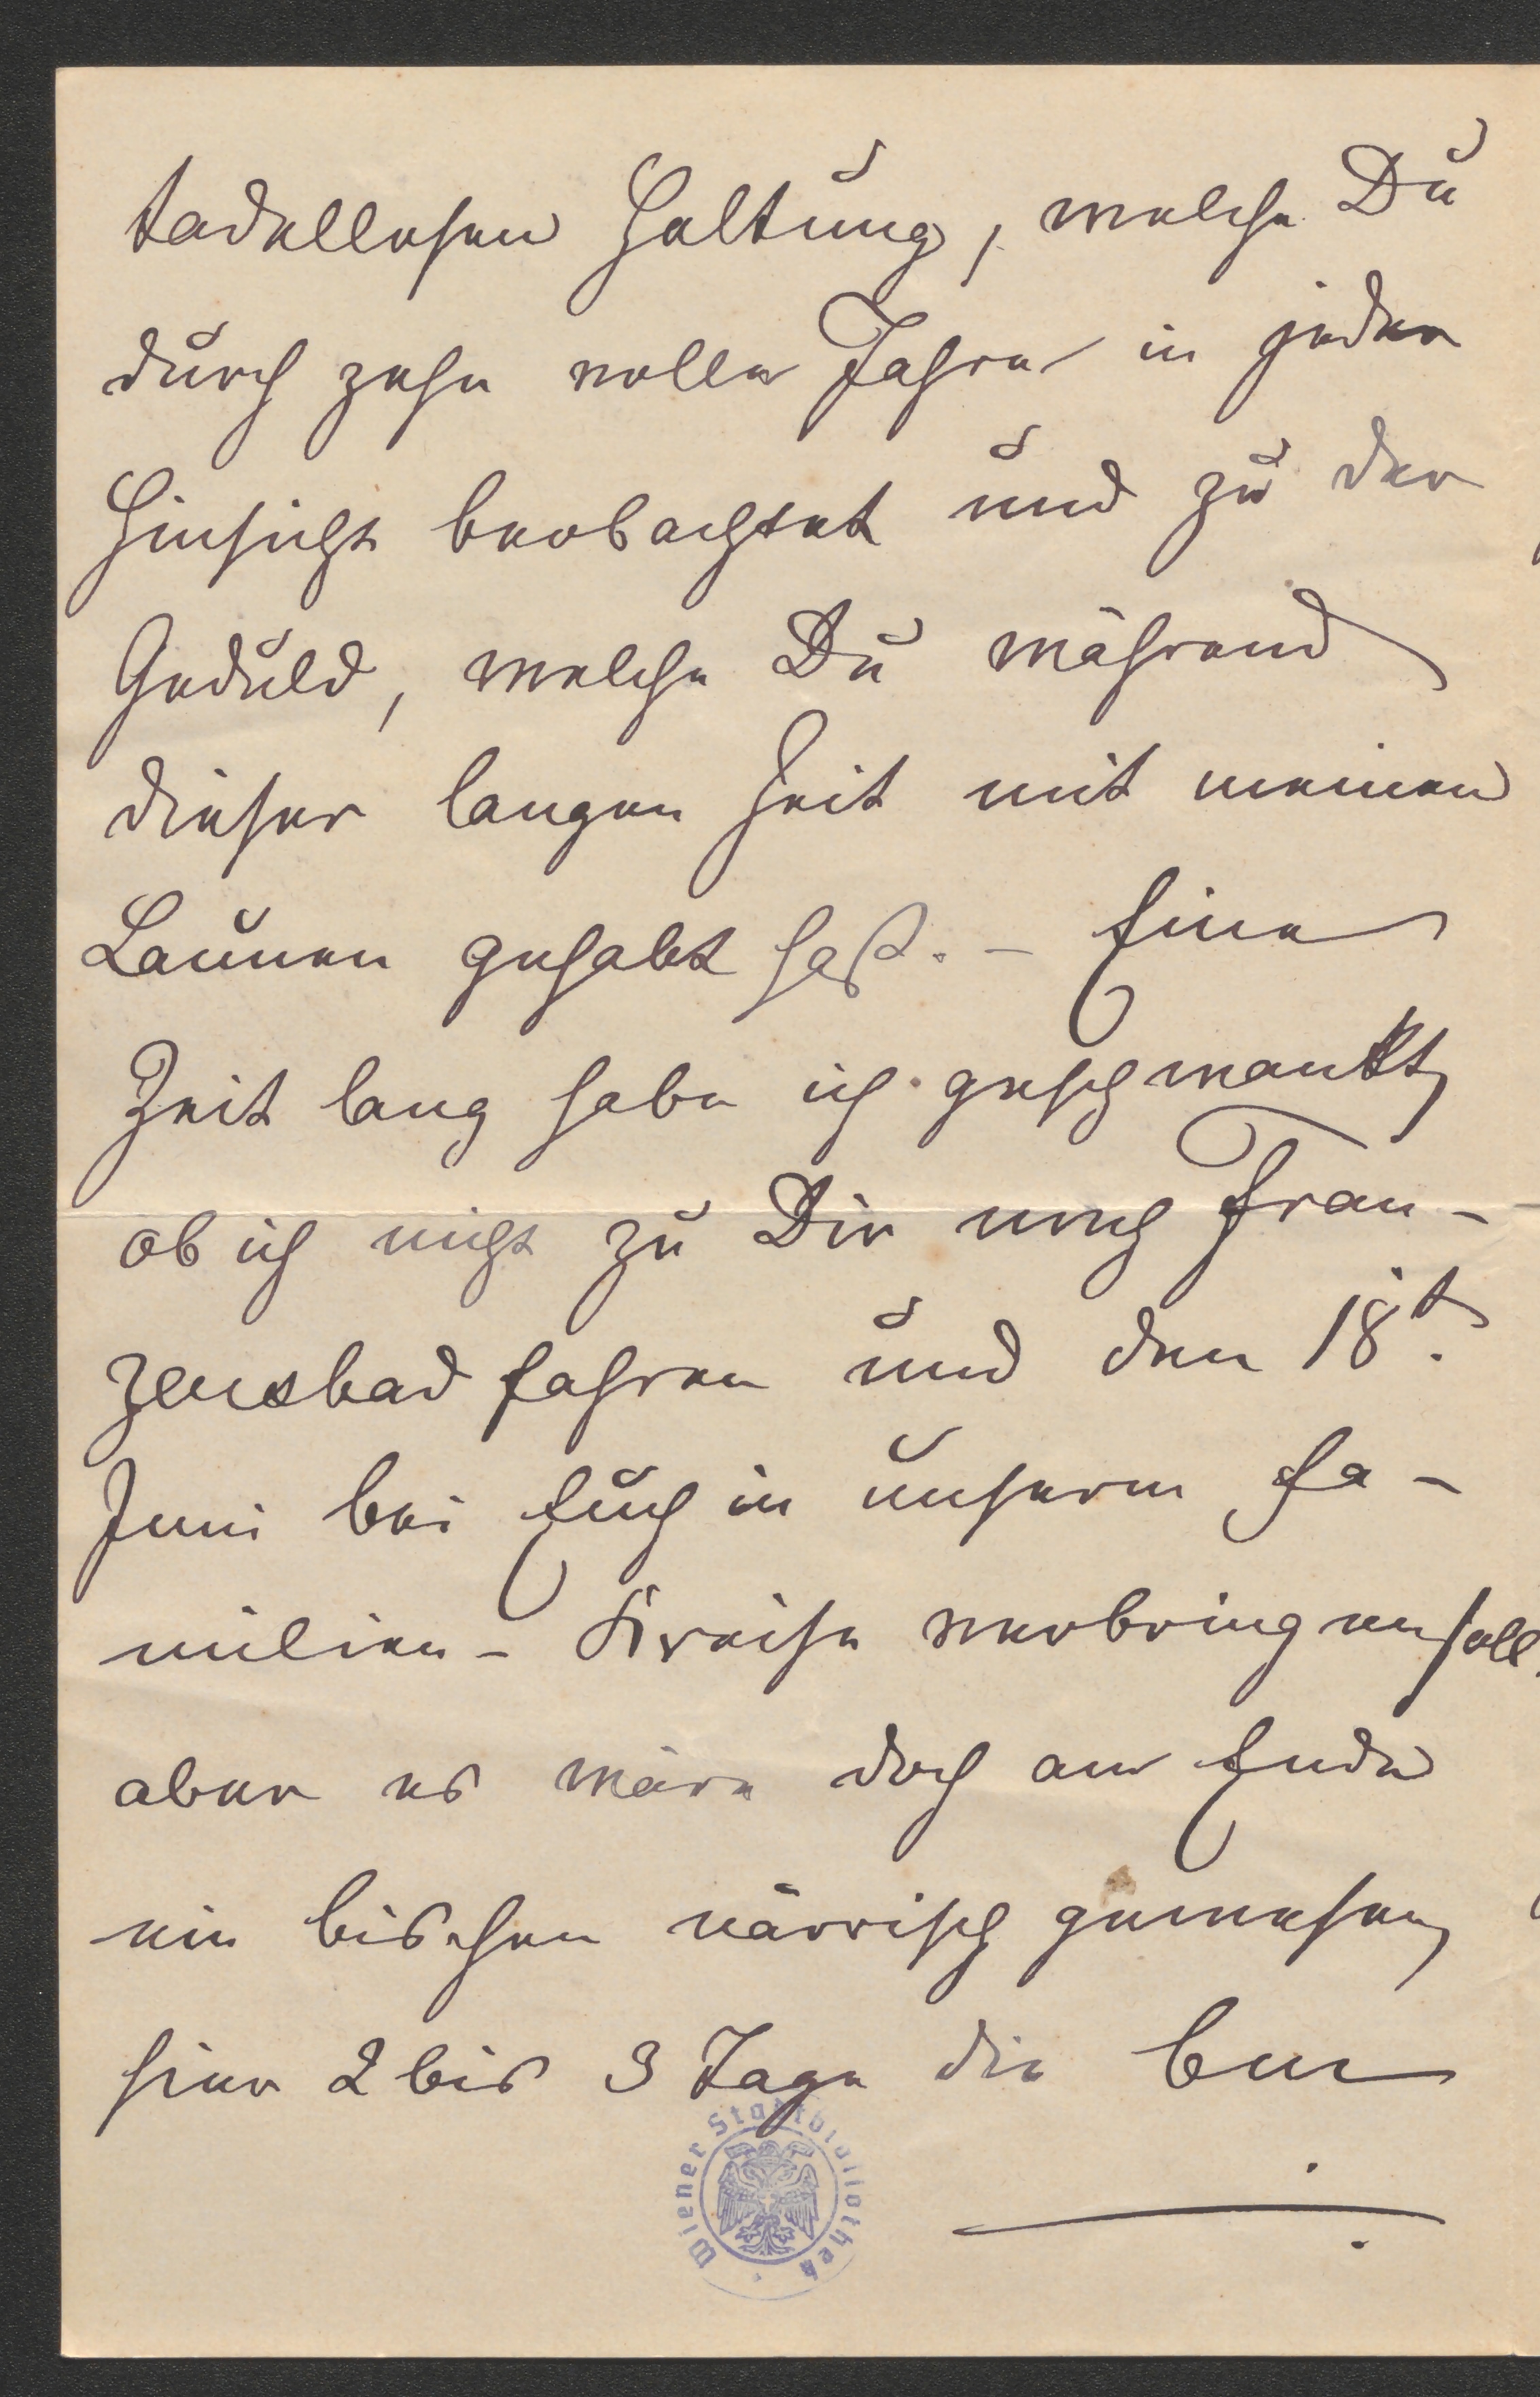 tadellosen Haltung, welche Du
durch zehn volle Jahre in jeder
Hinsicht beobachtet und zu der
Geduld, welche Du während
dieser langen Zeit mit meinen
Launen gehabt hast. – Eine
Zeit lang habe ich geschwankt,
ob ich nicht zu Dir nach Fran-
zensbad fahren und den 18t.
Juni bei Euch in unserm Fa-
milien-Kreise verbringen soll,
aber es wäre doch am Ende
ein bischen närrisch gewesen,
hier 2 bis 3 Tage die Cur
Wiener Stadtbibliothek